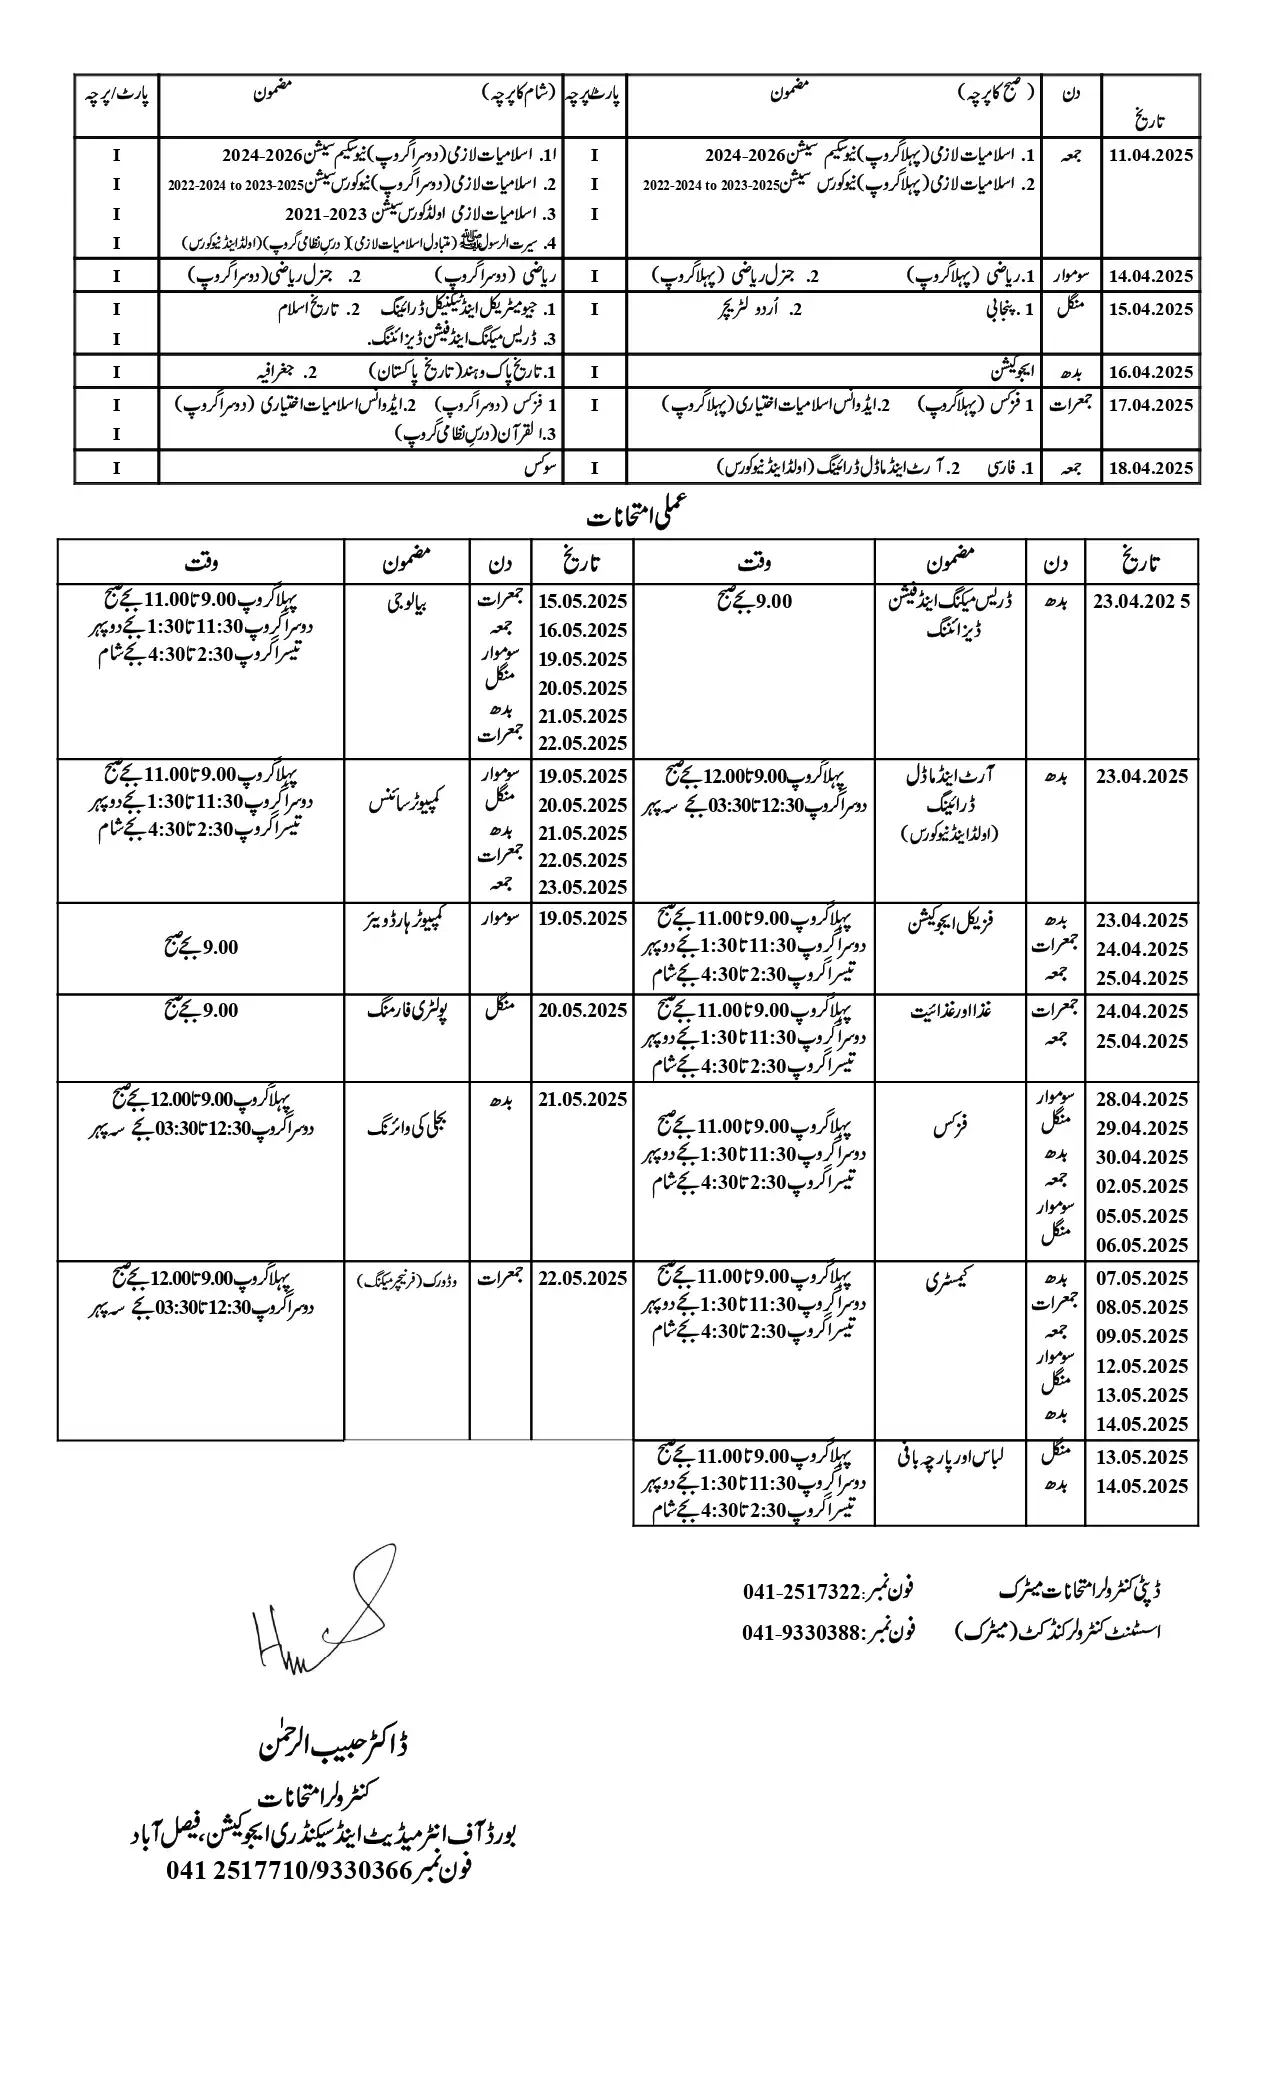 تاریخ دن (صبح کا پرچہ) مضمون پارٹ/پرچہ (شام کا پرچہ) مضمون پارٹ/پرچہ
11.04.2025 جمعہ 1. اسلامیات لازمی (پہلا گروپ) نیو سکیم سیشن 2024-2026 I 1ا. اسلامیات لازمی (دوسرا گروپ) نیو سکیم سیشن 2024-2026 I
2. اسلامیات لازمی (پہلا گروپ) نیو کورس سیشن 2022-2024 to 2023-2025 I 2. اسلامیات لازمی (دوسرا گروپ) نیو کورس سیشن 2022-2024 to 2023-2025 I
I 3. اسلامیات لازمی اولڈ کورس سیشن 2021-2023 I
4. سیرت الرسولﷺ (متبادل اسلامیات لازمی) (درسِ نظامی گروپ) (اولڈ اینڈ نیو کورس) I
14.04.2025 سوموار 1. ریاضی (پہلا گروپ) 2. جنرل ریاضی (پہلا گروپ) I ریاضی (دوسرا گروپ) 2. جنرل ریاضی (دوسرا گروپ) I
15.04.2025 منگل 1. پنجابی 2. اُردو لٹریچر I 1. جیومیٹریکل اینڈ ٹیکنیکل ڈرائینگ 2. تاریخ اسلام I
3. ڈریس میکنگ اینڈ فیشن ڈیزائننگ. I
16.04.2025 بدھ ایجوکیشن I 1. تاریخ پاک و ہند (تاریخ پاکستان) 2. جغرافیہ I
17.04.2025 جمعرات 1 فزکس (پہلا گروپ) 2. ایڈوانس اسلامیات اختیاری (پہلا گروپ) I 1 فزکس (دوسرا گروپ) 2. ایڈوانس اسلامیات اختیاری (دوسرا گروپ) I
3. القرآن (درسِ نظامی گروپ) I
18.04.2025 جمعہ 1. فارسی 2. آرٹ اینڈ ماڈل ڈرائینگ (اولڈ اینڈ نیو کورس) I سوکس I
عملی امتحانات
تاریخ دن مضمون وقت تاریخ دن مضمون وقت
23.04.2025 بدھ ڈریس میکنگ اینڈ فیشن 9.00 بجے صبح 15.05.2025 جمعرات بیالوجی پہلا گروپ 9.00 تا 11.00 بجے صبح
ڈیزائننگ 16.05.2025 جمعہ دوسرا گروپ 11:30 تا 1:30 بجے دوپہر
19.05.2025 سوموار تیسرا گروپ 2:30 تا 4:30 بجے شام
20.05.2025 منگل
21.05.2025 بدھ
22.05.2025 جمعرات
23.04.2025 بدھ آرٹ اینڈ ماڈل پہلا گروپ 9.00 تا 12.00 بجے صبح 19.05.2025 سوموار کمپیوٹر سائنس پہلا گروپ 9.00 تا 11.00 بجے صبح
ڈرائینگ دوسرا گروپ 12:30 تا 03:30 بجے سہ پہر 20.05.2025 منگل دوسرا گروپ 11:30 تا 1:30 بجے دوپہر
(اولڈ اینڈ نیو کورس) 21.05.2025 بدھ تیسرا گروپ 2:30 تا 4:30 بجے شام
22.05.2025 جمعرات
23.05.2025 جمعہ
23.04.2025 بدھ فزیکل ایجوکیشن پہلا گروپ 9.00 تا 11.00 بجے صبح 19.05.2025 سوموار کمپیوٹر ہارڈ ویئر 9.00 بجے صبح
24.04.2025 جمعرات دوسرا گروپ 11:30 تا 1:30 بجے دوپہر
25.04.2025 جمعہ تیسرا گروپ 2:30 تا 4:30 بجے شام
24.04.2025 جمعرات غذا اور غذائیت پہلا گروپ 9.00 تا 11.00 بجے صبح 20.05.2025 منگل پولٹری فارمنگ 9.00 بجے صبح
25.04.2025 جمعہ دوسرا گروپ 11:30 تا 1:30 بجے دوپہر
تیسرا گروپ 2:30 تا 4:30 بجے شام
28.04.2025 سوموار فزکس پہلا گروپ 9.00 تا 11.00 بجے صبح 21.05.2025 بدھ بجلی کی وائرنگ پہلا گروپ 9.00 تا 12.00 بجے صبح
29.04.2025 منگل دوسرا گروپ 11:30 تا 1:30 بجے دوپہر دوسرا گروپ 12:30 تا 03:30 بجے سہ پہر
30.04.2025 بدھ تیسرا گروپ 2:30 تا 4:30 بجے شام
02.05.2025 جمعہ
05.05.2025 سوموار
06.05.2025 منگل
07.05.2025 بدھ کیمسٹری پہلا گروپ 9.00 تا 11.00 بجے صبح 22.05.2025 جمعرات وڈورک (فرنیچر میکنگ) پہلا گروپ 9.00 تا 12.00 بجے صبح
08.05.2025 جمعرات دوسرا گروپ 11:30 تا 1:30 بجے دوپہر دوسرا گروپ 12:30 تا 03:30 بجے سہ پہر
09.05.2025 جمعہ تیسرا گروپ 2:30 تا 4:30 بجے شام
12.05.2025 سوموار
13.05.2025 منگل
14.05.2025 بدھ
13.05.2025 منگل لباس اور پارچہ بافی پہلا گروپ 9.00 تا 11.00 بجے صبح
14.05.2025 بدھ دوسرا گروپ 11:30 تا 1:30 بجے دوپہر
تیسرا گروپ 2:30 تا 4:30 بجے شام
ڈپٹی کنٹرولر امتحانات میٹرک فون نمبر: 041-2517322
اسسٹنٹ کنٹرولر کنڈکٹ (میٹرک) فون نمبر: 041-9330388
ڈاکٹر حبیب الرحمٰن
کنٹرولر امتحانات
بورڈ آف انٹرمیڈیٹ اینڈ سیکنڈری ایجوکیشن، فیصل آباد
فون نمبر 041 2517710/9330366